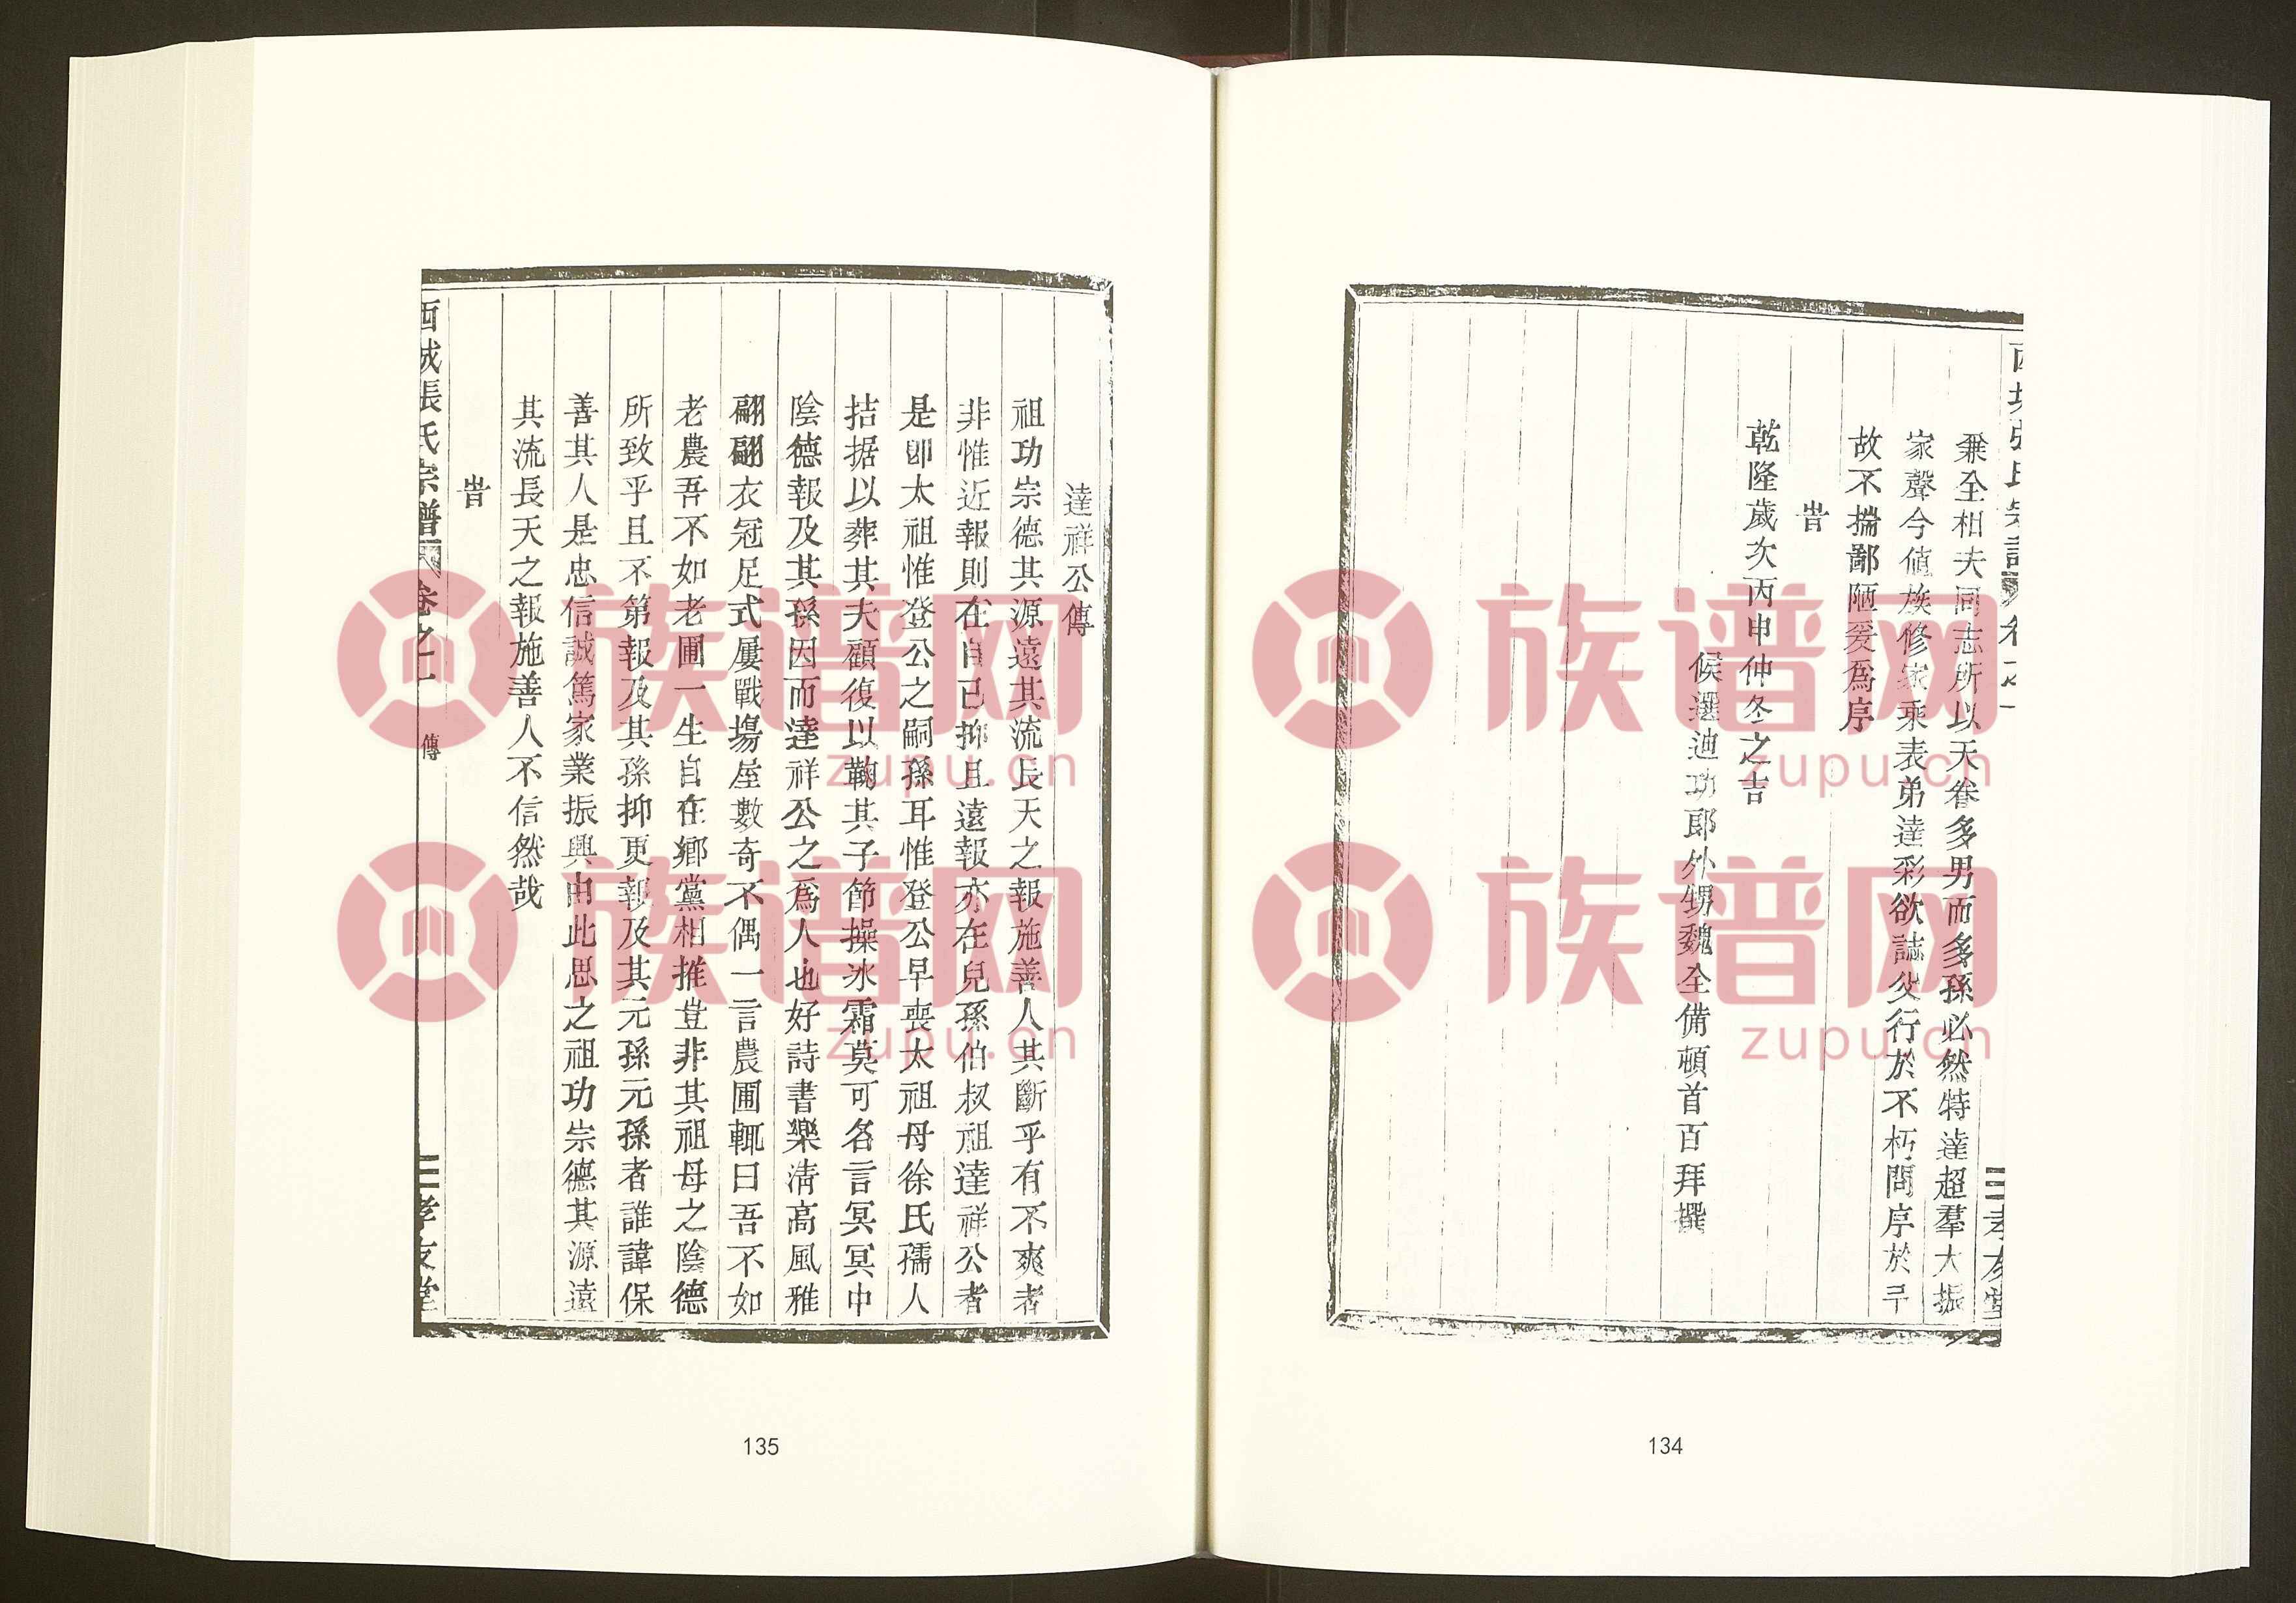 秉全相夫同志所以天眷多男而多孫必然特達超羣大振
家聲今值族修家乘表弟達彩欲誌父行於不朽問序於予
故不揣鄙陋爰為序
旹
乾隆歲次丙申仲冬之吉
候選迪功郎外甥魏全備頓首百拜撰
134
達祥公傳
祖功宗德其源遠其流長天之報施善人其斷乎有不爽者
非惟近報則在自己抑且遠報亦在兒孫伯叔祖達祥公者
是卽太祖惟登公之嗣孫耳惟登公早喪太祖母徐氏孺人
拮据以葬其夫顧復以鞠其子節操冰霜莫可名言冥冥中
陰德報及其孫因而達祥公之為人也好詩書樂清高風雅
翩翩衣冠足式屢戰場屋數奇不偶一言農圃輒曰吾不如
老農吾不如老圃一生自在鄉黨相推豈非其祖母之陰德
所致乎且不第報及其孫抑更報及其元孫元孫者誰諱保
善其人是忠信誠篤家業振興由此思之祖功宗德其源遠
其流長天之報施善人不信然哉
旹
西城張氏宗譜 卷之一 傳 二 孝友堂
135
族谱网
zupu.cn
族谱网
zupu.cn
族谱网
zupu.cn
族谱网
zupu.cn